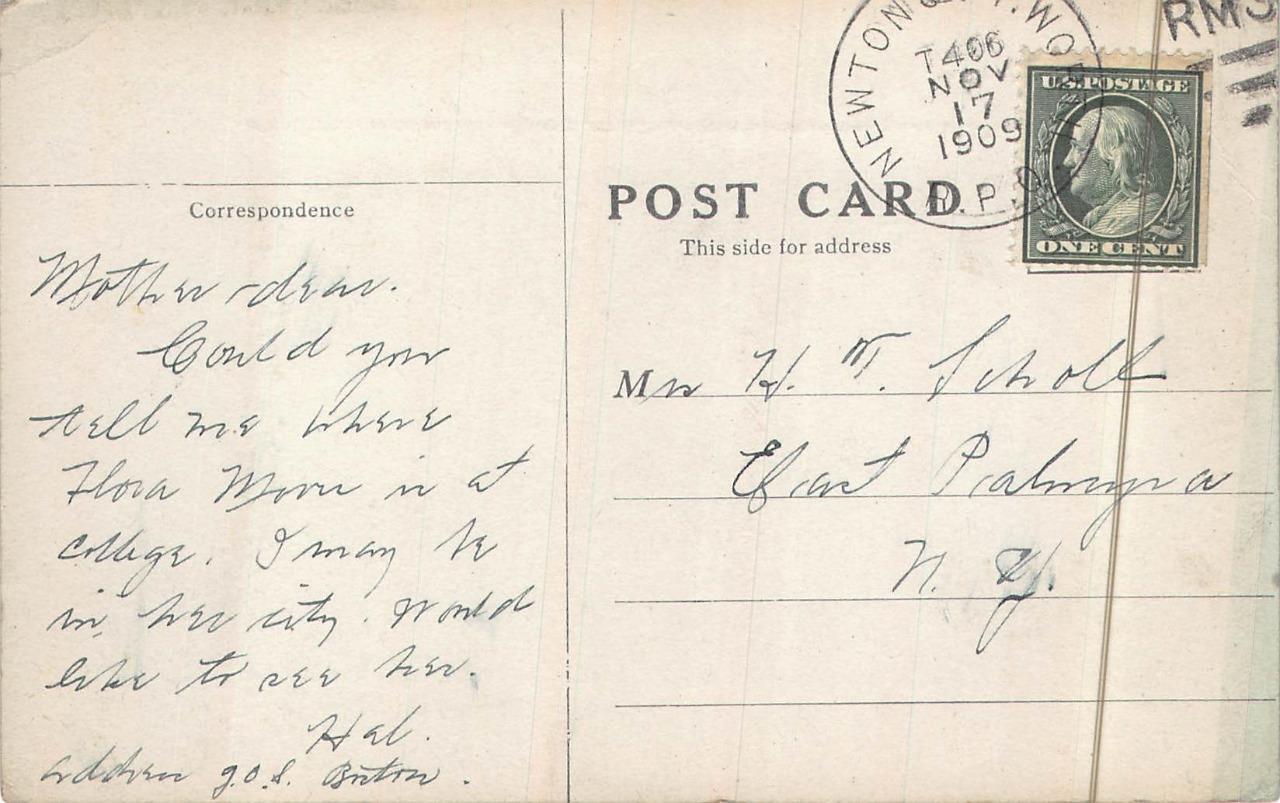 NEWTON & FT. WORTH
T406
NOV
17
1909
R.P.O.
RMS
U.S. POSTAGE
ONE CENT
POST CARD
This side for address
Correspondence
Mother dear.
Could you
tell me where
Flora Moore is at
college. I may be
in her city. Would
like to see her.
Hal.
address
Mrs H. T. Scholl
East Palmyra
N. Y.